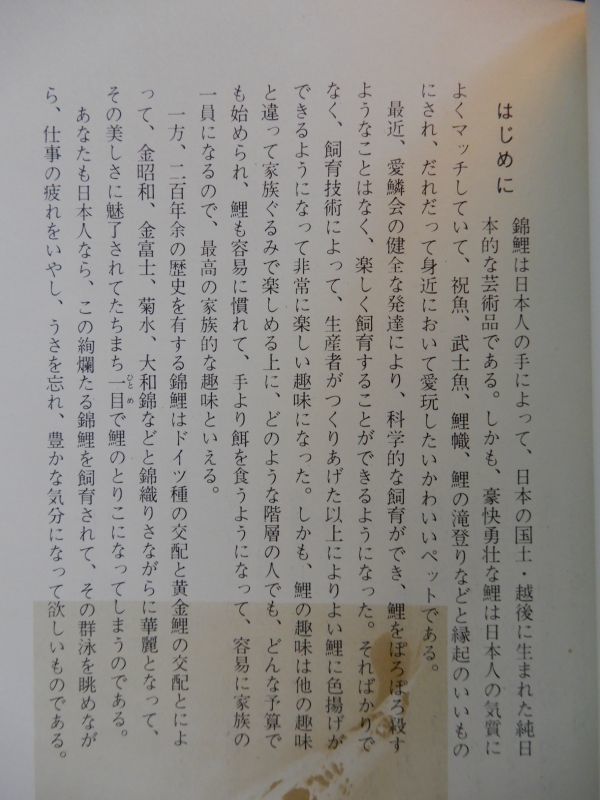 はじめに
錦鯉は日本人の手によって、日本の国土・越後に生まれた純日
本的な芸術品である。しかも、豪快勇壮な鯉は日本人の気質に
よくマッチしていて、祝魚、武士魚、鯉幟、鯉の滝登りなどと縁起のいいもの
にされ、だれだって身近において愛玩したいかわいいペットである。
最近、愛鱗会の健全な発達により、科学的な飼育ができ、鯉をぽろぽろ殺す
ようなことはなく、楽しく飼育することができるようになった。そればかりで
なく、飼育技術によって、生産者がつくりあげた以上によりよい鯉に色揚げが
できるようになって非常に楽しい趣味になった。しかも、鯉の趣味は他の趣味
と違って家族ぐるみで楽しめる上に、どのような階層の人でも、どんな予算で
も始められ、鯉も容易に慣れて、手より餌を食うようになって、容易に家族の
一員になるので、最高の家族的な趣味といえる。
一方、二百年余の歴史を有する錦鯉はドイツ種の交配と黄金鯉の交配とによ
って、金昭和、金富士、菊水、大和錦などと錦織りさながらに華麗となって、
その美しさに魅了されてたちまち一目で鯉のとりこになってしまうのである。
ひとめ
あなたも日本人なら、この絢爛たる錦鯉を飼育されて、その群泳を眺めなが
ら、仕事の疲れをいやし、うさを忘れ、豊かな気分になって欲しいものである。